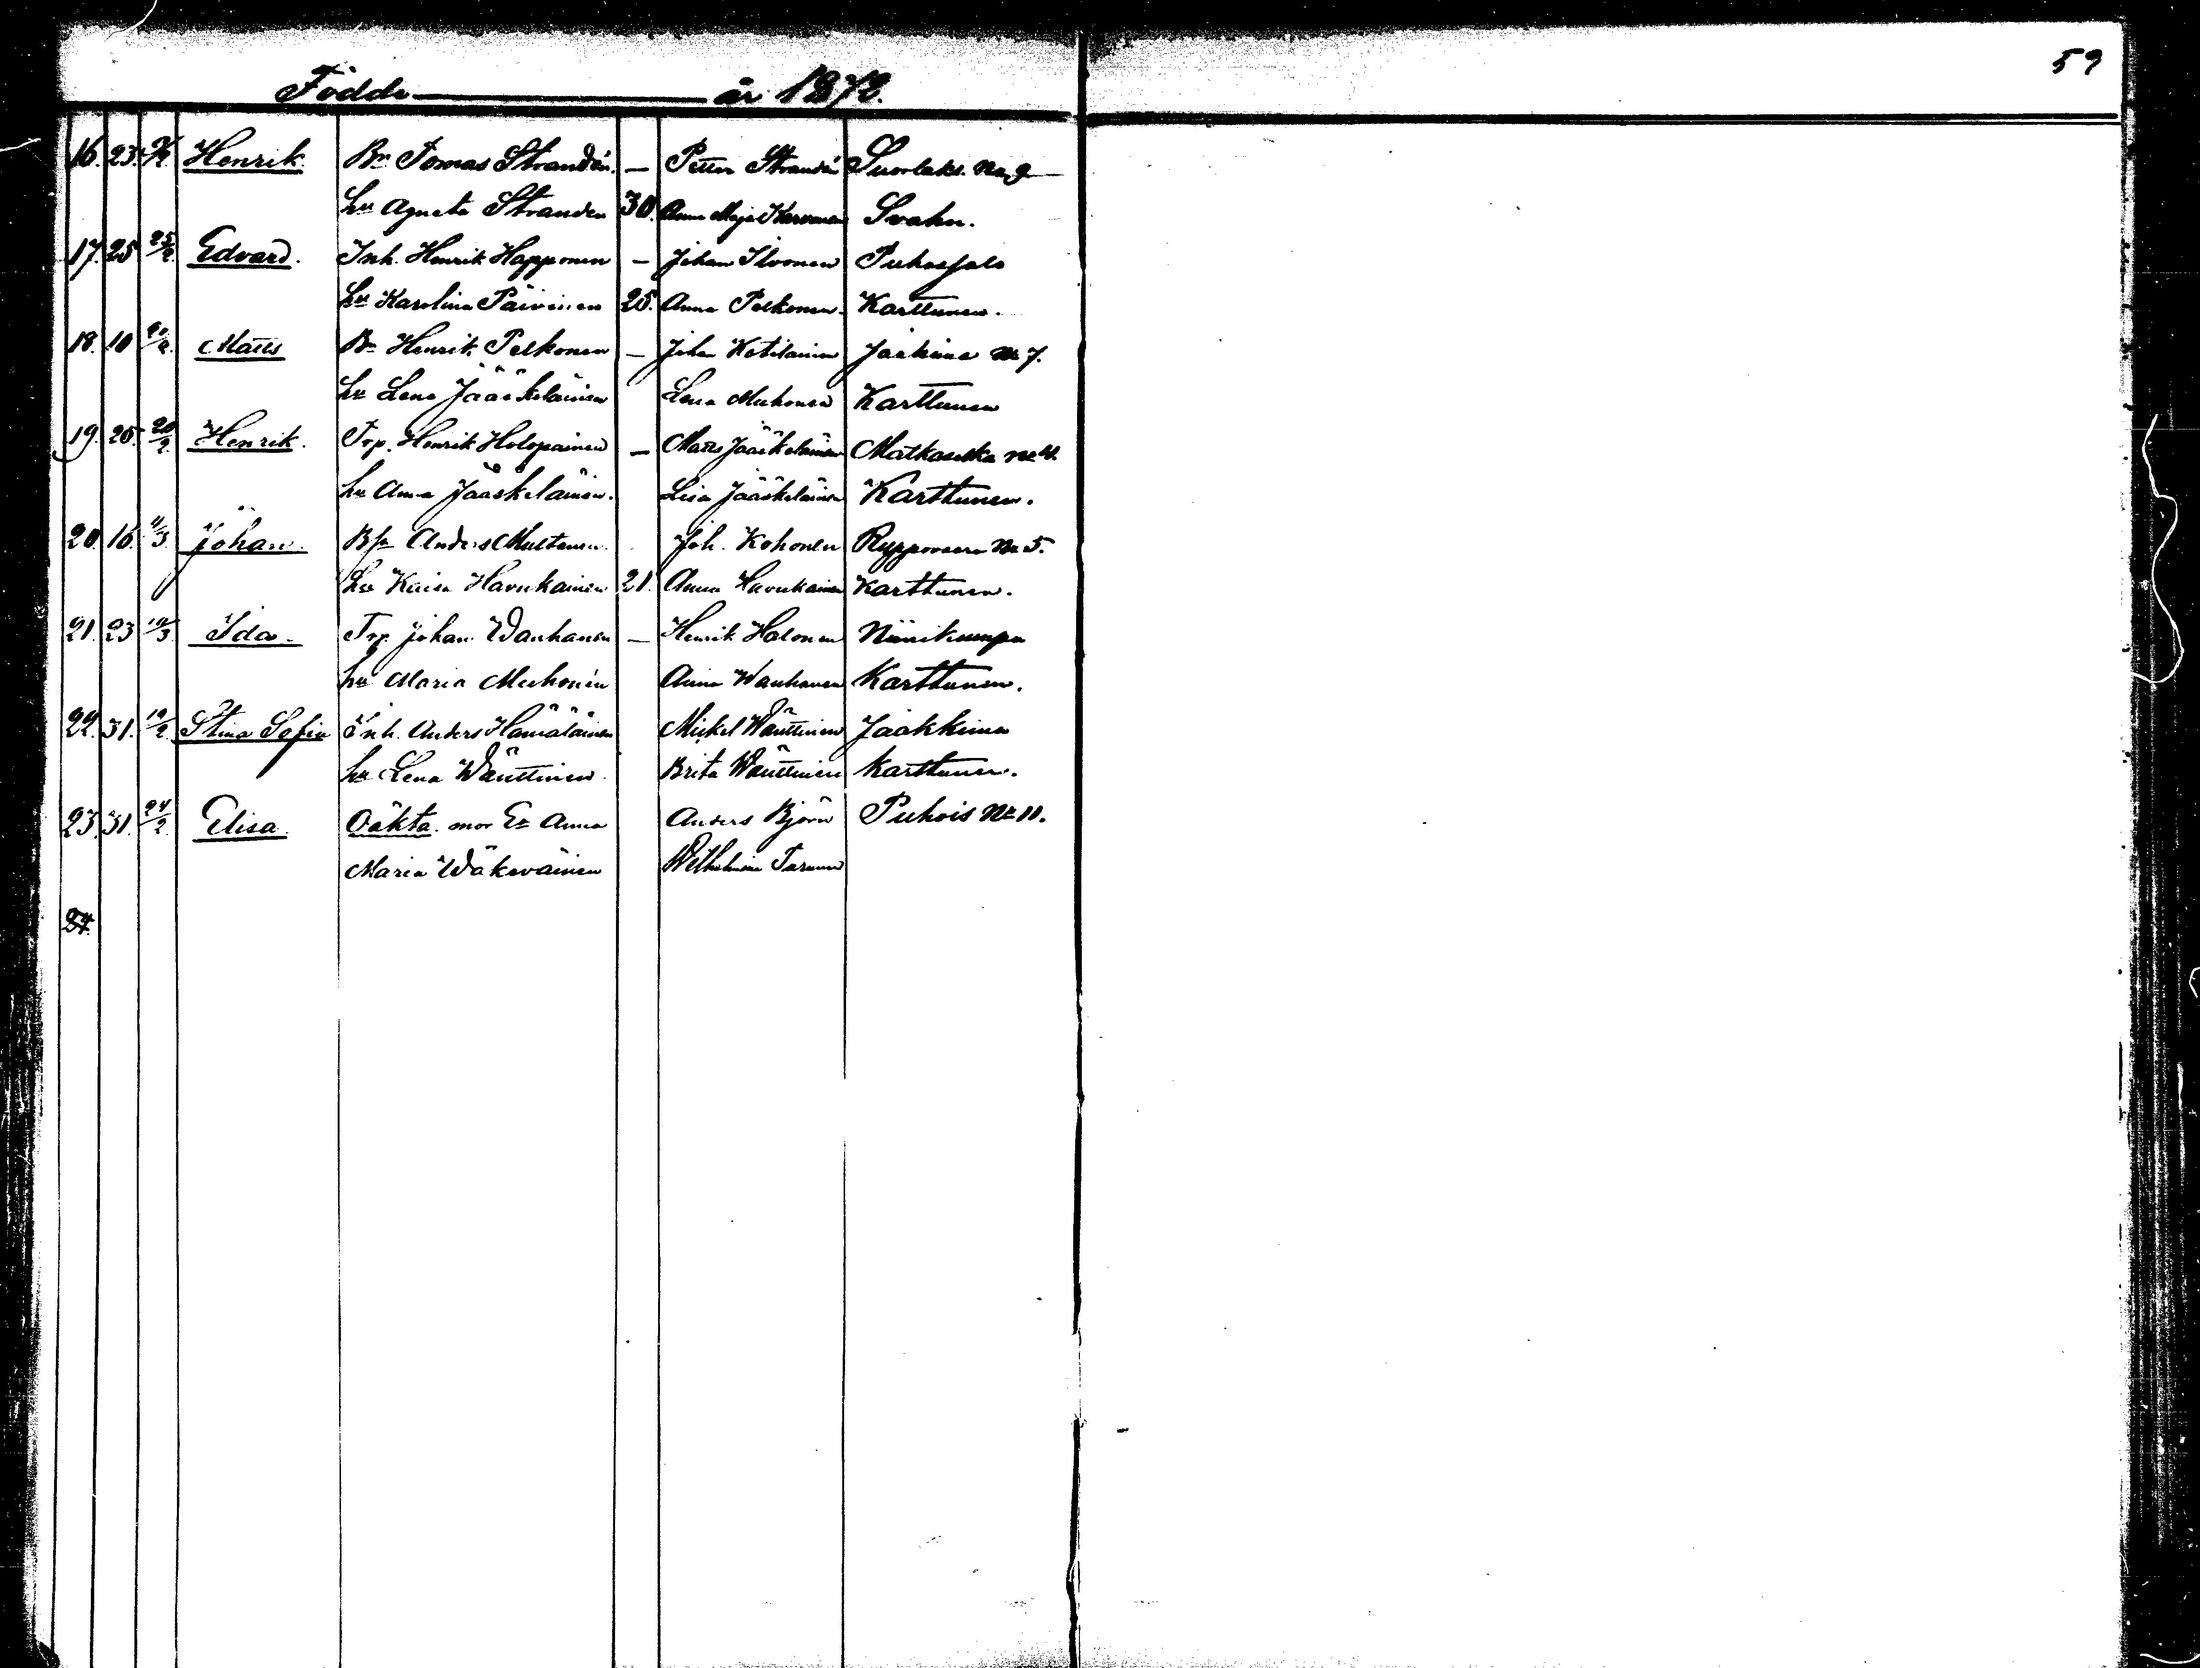 59
Födde år 1872.
16. 23. Henrik. Bn Tomas Stranden. — Petter Stranden Suorlaks. No 9
hu Agneta Stranden 30. Anna Maja Karvonen Svahn.
17. 25 25/2 Edvard. Inh. Henrik Happonen — Johan Ilvonen Puhossalo
hu Karolina Päivinen 25. Anna Pelkonen. Karttunen.
18. 10 Matts Bn Henrik Pelkonen — Johan Kotilainen Jaakima No 7.
hu Lena Jääskeläinen Lena Muhonen Karttunen
19. 25. 20/2 Henrik. Trp. Henrik Holopainen — Matts Jääskeläinen Matkaselkä No 4.
hu Anna Jääskeläinen. Lisa Jääskeläinen Karttunen.
20. 16. Johan. Anders Multanen Joh. Kohonen No 5.
hu Kaisa Havukainen 21. Anna Havukainen Karttunen.
21. 23 10/3 Ida. Trp. Johan Wanhanen — Henrik Halonen Niinikumpu
hu Maria Muhonen Anna Wanhanen Karttunen.
22. 31. 19/2 Stina Sofia Inh. Anders Hämäläinen Mickel Wänttinen Jaakkima
hu Lena Wänttinen. Brita Wänttinen Karttunen.
23. 31. 24/2 Elisa. Oäkta. mor Anna Anders Björn Puhois No 11.
Maria Wäkeväinen Wilhelmina Turunen
24.